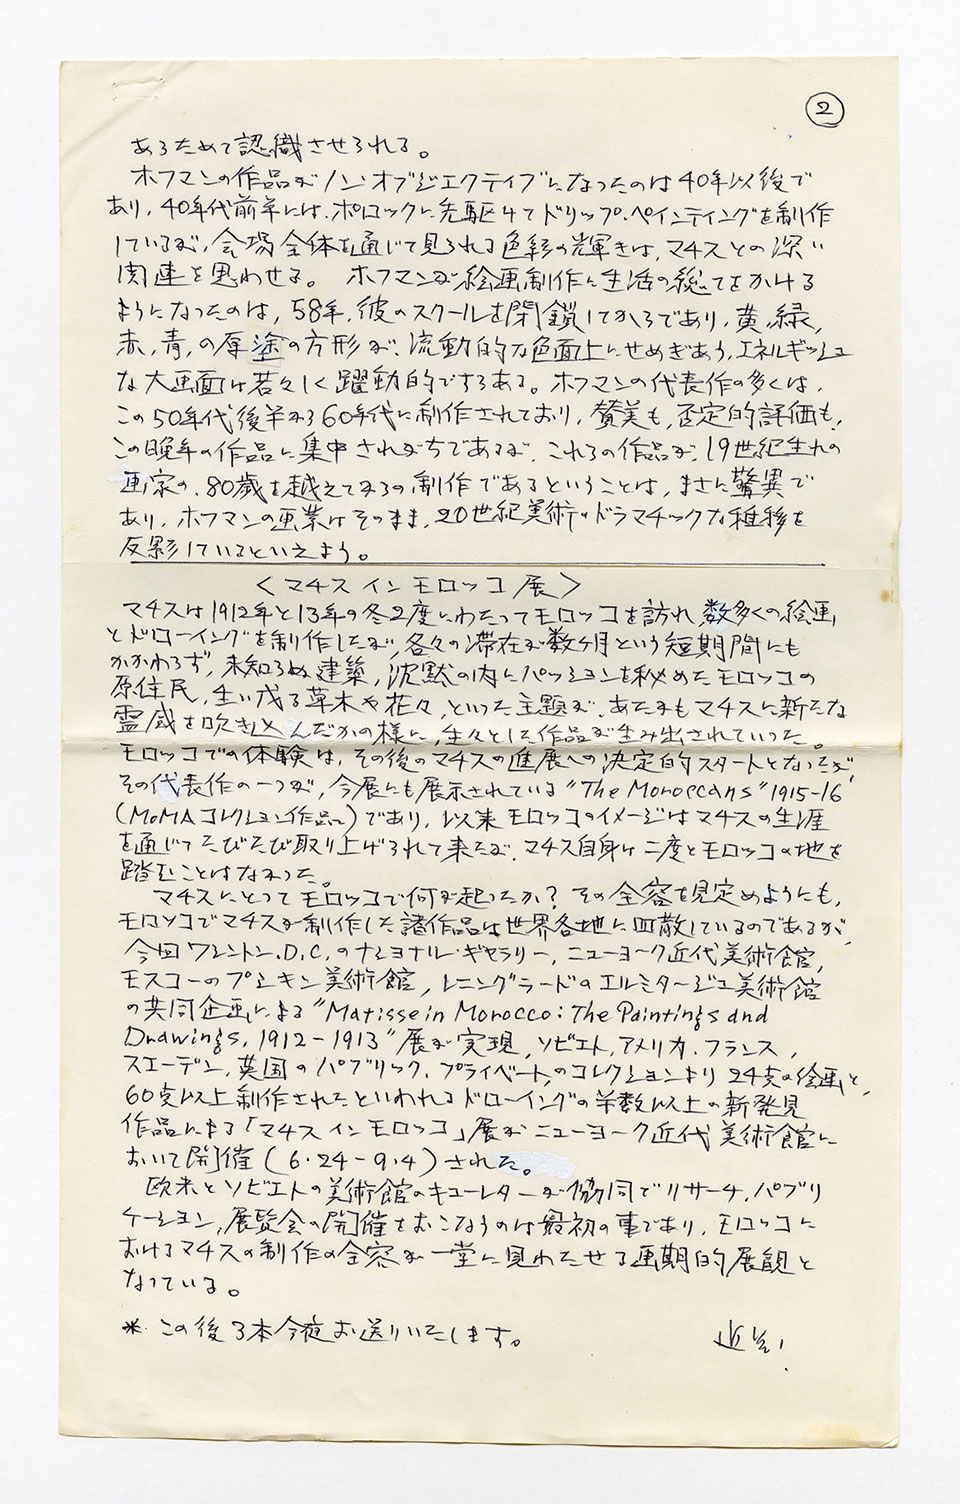 ②
あらためて認識させられる。
ホフマンの作品がノン・オブジェクティブになったのは40年以後で
あり、40年代前半には、ポロックに先駆けてドリップ・ペインティングを制作
しているが、会場全体を通じて見られる色彩の輝きは、マチスとの深い
関連を思わせる。 ホフマンが絵画制作に生活の総てをかける
ようになったのは、58年、彼のスクールを閉鎖してからであり、黄、緑、
赤、青、の厚塗の方形が、流動的な色面上にせめぎあう、エネルギッシュ
な大画面は若々しく躍動的ですらある。ホフマンの代表作の多くは、
この50年代後半から60年代に制作されており、賛美も、否定的評価も、
この晩年の作品に集中されがちであるが、これらの作品が、19世紀生れの
画家の、80歳を越えてからの制作であるということは、まさに驚異で
あり、ホフマンの画業はそのまま、20世紀美術のドラマチックな推移を
反影しているといえよう。
＜マチス イン モロッコ 展＞
マチスは1912年と13年の冬2度にわたってモロッコを訪れ、数多くの絵画
とドローイングを制作したが、各々の滞在が数ヶ月という短期間にも
かかわらず、未知らぬ建築、沈黙の内にパッションを秘めたモロッコの
原住民、生い茂る草木や花々、といった主題が、あたかもマチスに新たな
霊感を吹き込んだかの様に、生々とした作品が生み出されていった。
モロッコでの体験は、その後のマチスの進展への決定的スタートとなったが、
その代表作の一つが、今展にも展示されている"The Moroccans"1915-16
(MoMAコレクション作品)であり、以来モロッコのイメージはマチスの生涯
を通じてたびたび取り上げられて来たが、マチス自身は二度とモロッコの地を
踏むことはなかった。
マチスにとってモロッコで何が起ったか？ その全容を見定めようにも、
モロッコでマチスが制作した諸作品は世界各地に四散しているのであるが、
今回ワシントン.D.C.のナショナル・ギャラリー、ニューヨーク近代美術館、
モスコーのプーシキン美術館、レニングラードのエルミタージュ美術館
の共同企画による"Matisse in Morocco: The Paintings and
Drawings, 1912-1913"展が実現、ソビエト、アメリカ、フランス、
スエーデン、英国のパブリック、プライベートのコレクションより24点の絵画と、
60点以上制作されたといわれるドローイングの半数以上の新発見
作品による「マチス インモロッコ」展がニューヨーク近代美術館に
おいて開催(6・24-9・4)された。
欧米とソビエトの美術館のキューレターが協同でリサーチ、パブリ
ケーション、展覧会の開催をおこなうのは最初の事であり、モロッコに
おけるマチスの制作の全容が一堂に見わたせる画期的展観と
なっている。
＊この後3本今夜お送りいたします。